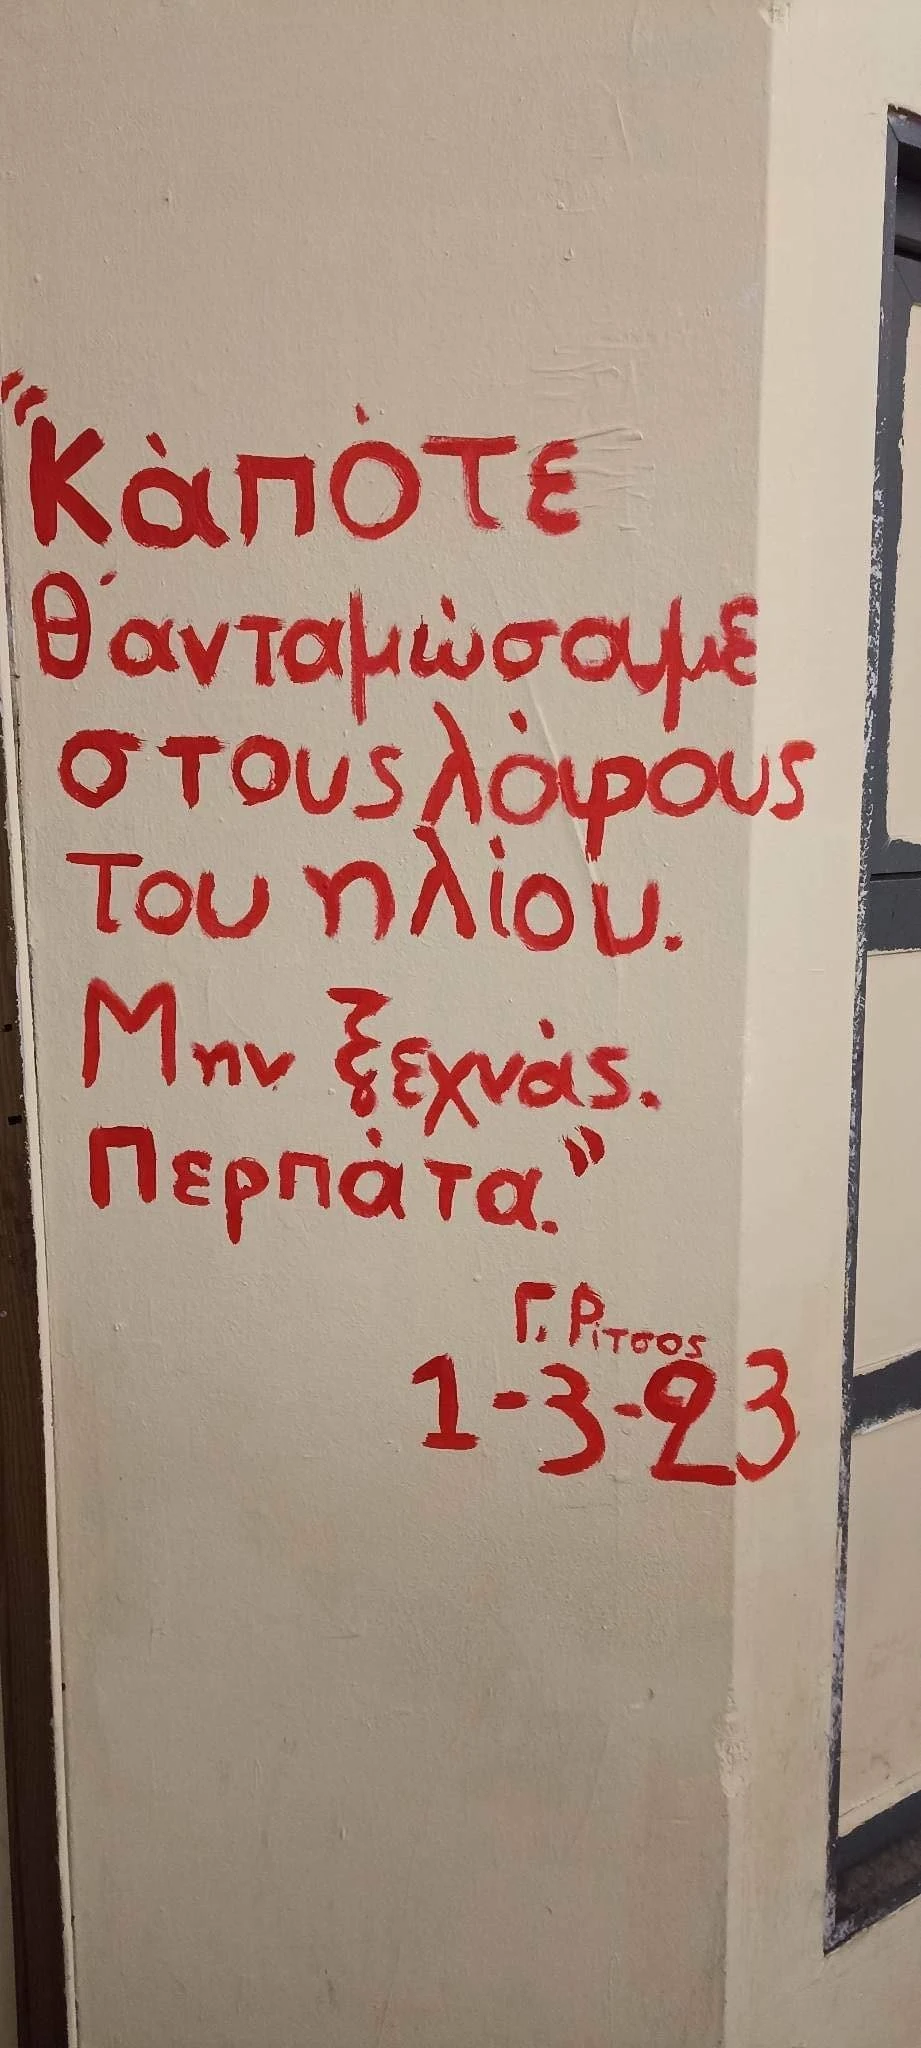 “Κάπότε
θ'ανταμώσαμε
στους λόφους
του ηλίου.
Μην ξεχνάς.
Περπάτα.”
Γ. Ρίτσος
1-3-23